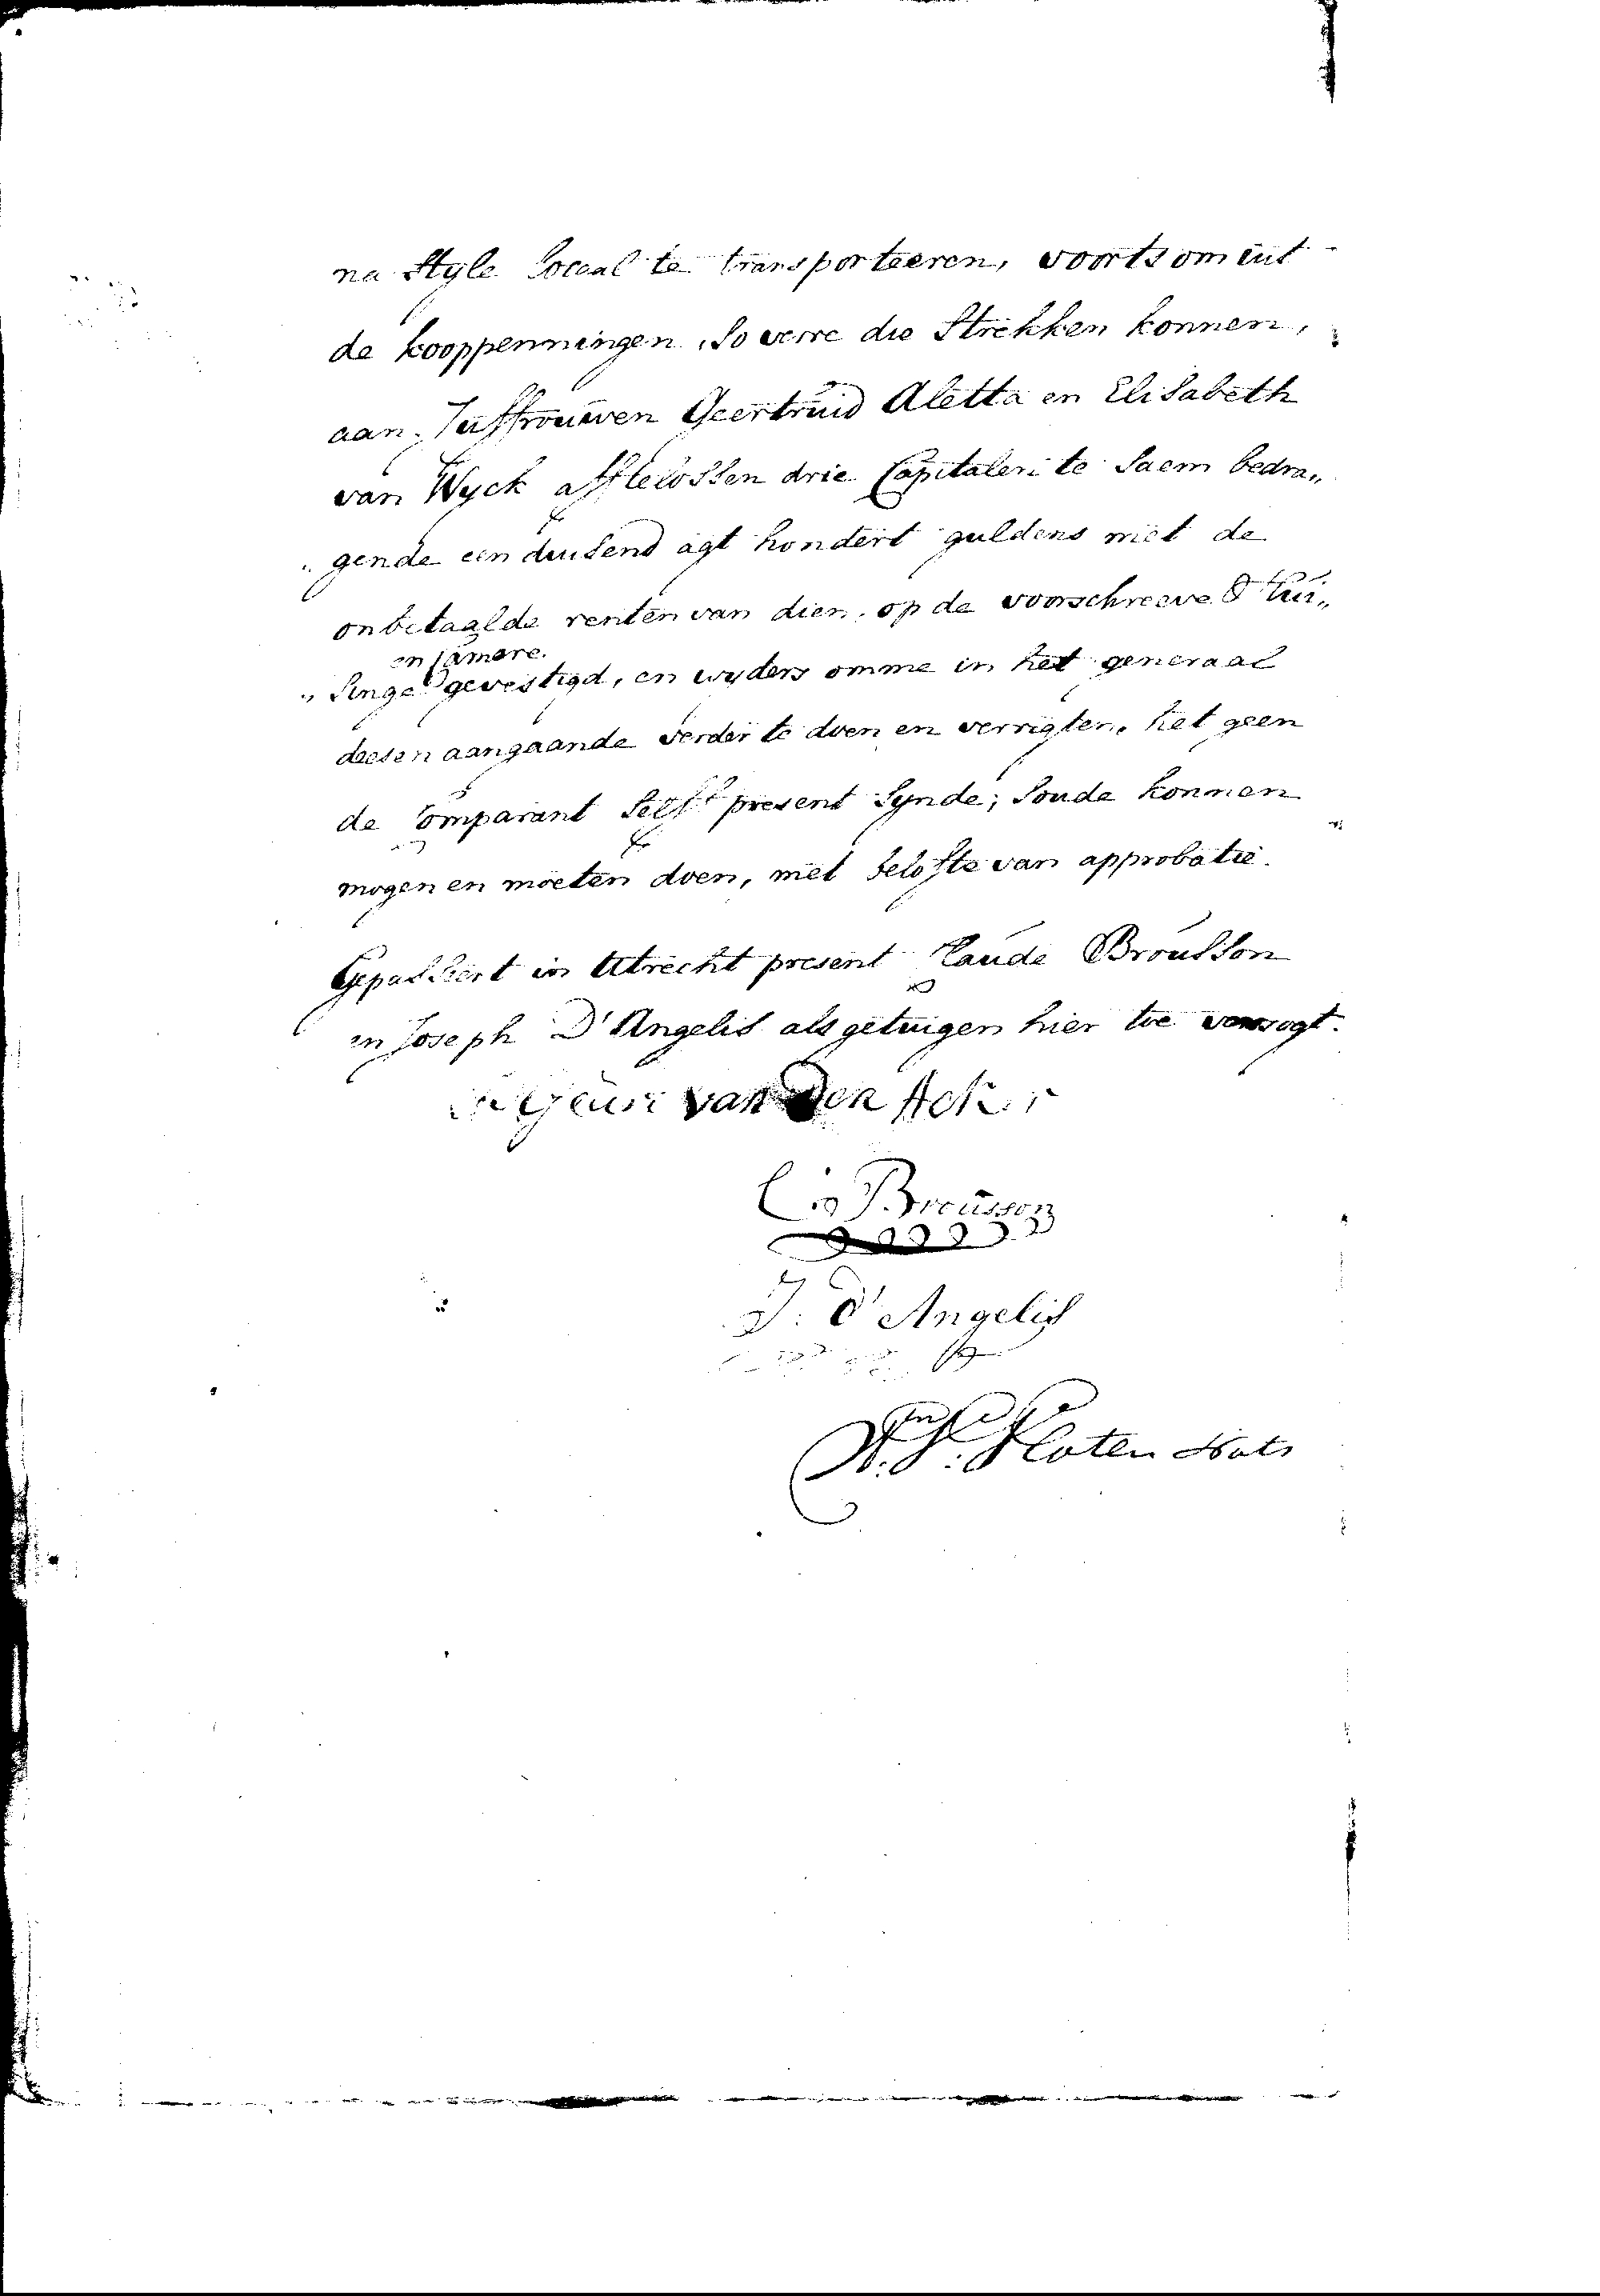 na Style Locaal te transporteeren, voorts om uut
de kooppenningen, So verre die Strekken konnen,
aan Juffrouwen Geertruid Aletta en Elisabeth
van Wyck afftelossen drie Capitalen te Saem bedra„
„gende een duisend agt hondert guldens met de
onbetaalde renten van dien, op de voorschreeve Hui„
en Camere
„singe gevestigd, en wyders omme in het generaal
deesen aangaande verder te doen en verrigten, het geen
de Comparant Self present Synde, Soude konnen
mogen en moeten doen, met belofte van approbatie.
Gepasseert in Utrecht present Claude Brousson
en Joseph D'Angelis als getuigen hier toe versogt.
van den Acker
Brousson
J. d'Angelis
Vloten Nots